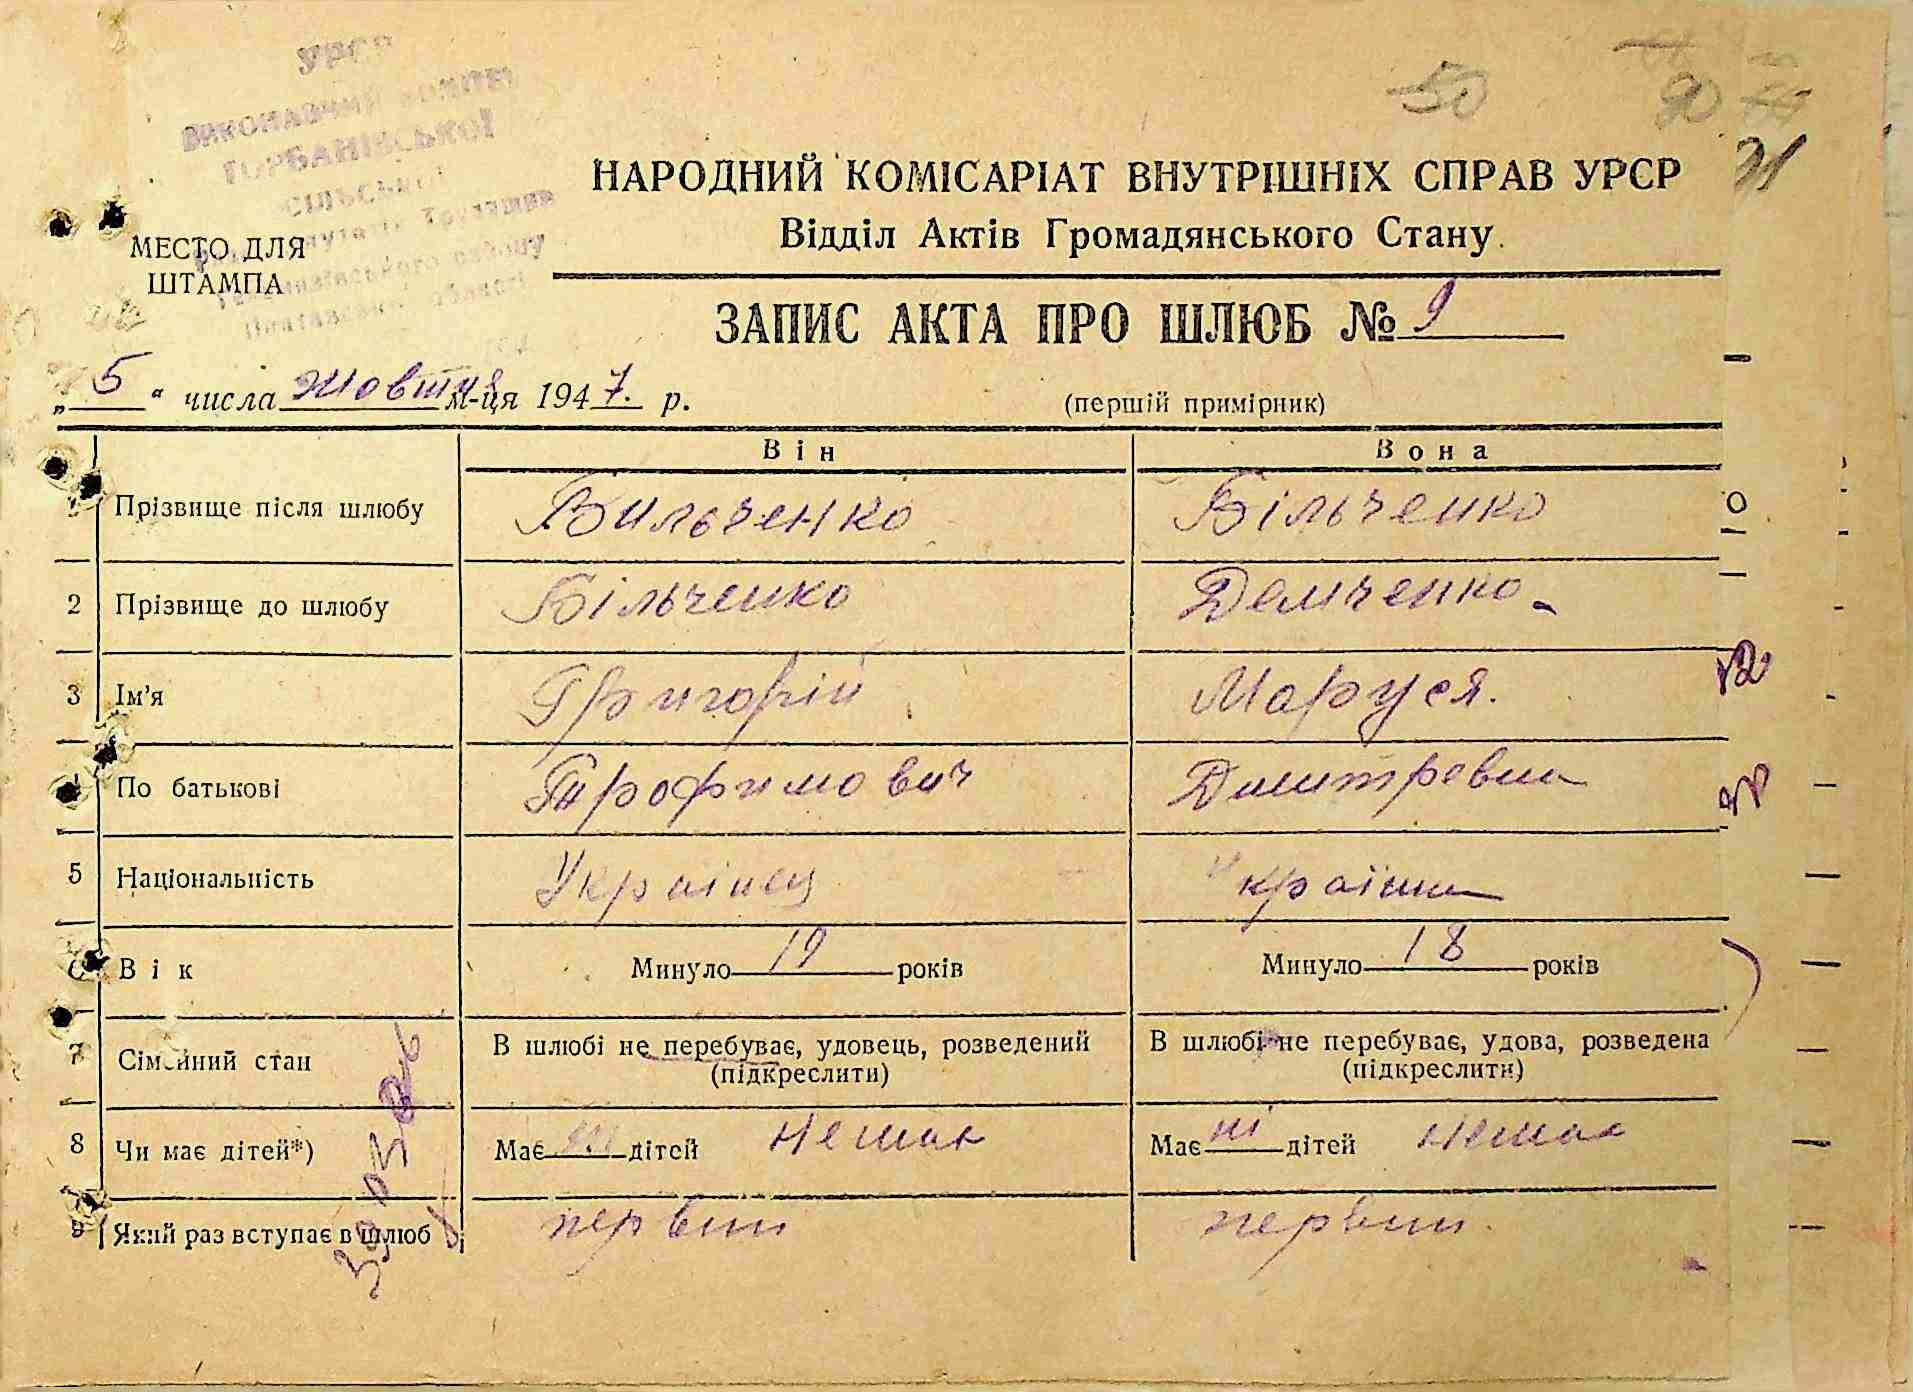 УРСР
ВИКОНАВЧИЙ КОМІТЕТ
ГОРБАНІВСЬКОЇ
СІЛЬСЬКОЇ
району
Полтавської області
50
90
91
НАРОДНИЙ КОМІСАРІАТ ВНУТРІШНІХ СПРАВ УРСР
Відділ Актів Громадянського Стану.
МЕСТО ДЛЯ
ШТАМПА
ЗАПИС АКТА ПРО ШЛЮБ № 9
„5“ числа жовтня м-ця 1947. р.
(першій примірник)
Він Вона
1 Прізвище після шлюбу Вильченко Більченко
2 Прізвище до шлюбу Більченко Демченко
3 Ім'я Григорій Маруся.
4 По батькові Трофимович Дмитревна
5 Національність Украінец Украінка
6 Вік Минуло 19 років Минуло 18 років
7 Сімейний стан В шлюбі не перебуває, удовець, розведений В шлюбі не перебуває, удова, розведена
(підкреслити) (підкреслити)
8 Чи має дітей*) Має ні дітей Немає Має ні дітей Немає
9 Який раз вступає в шлюб первий первий.